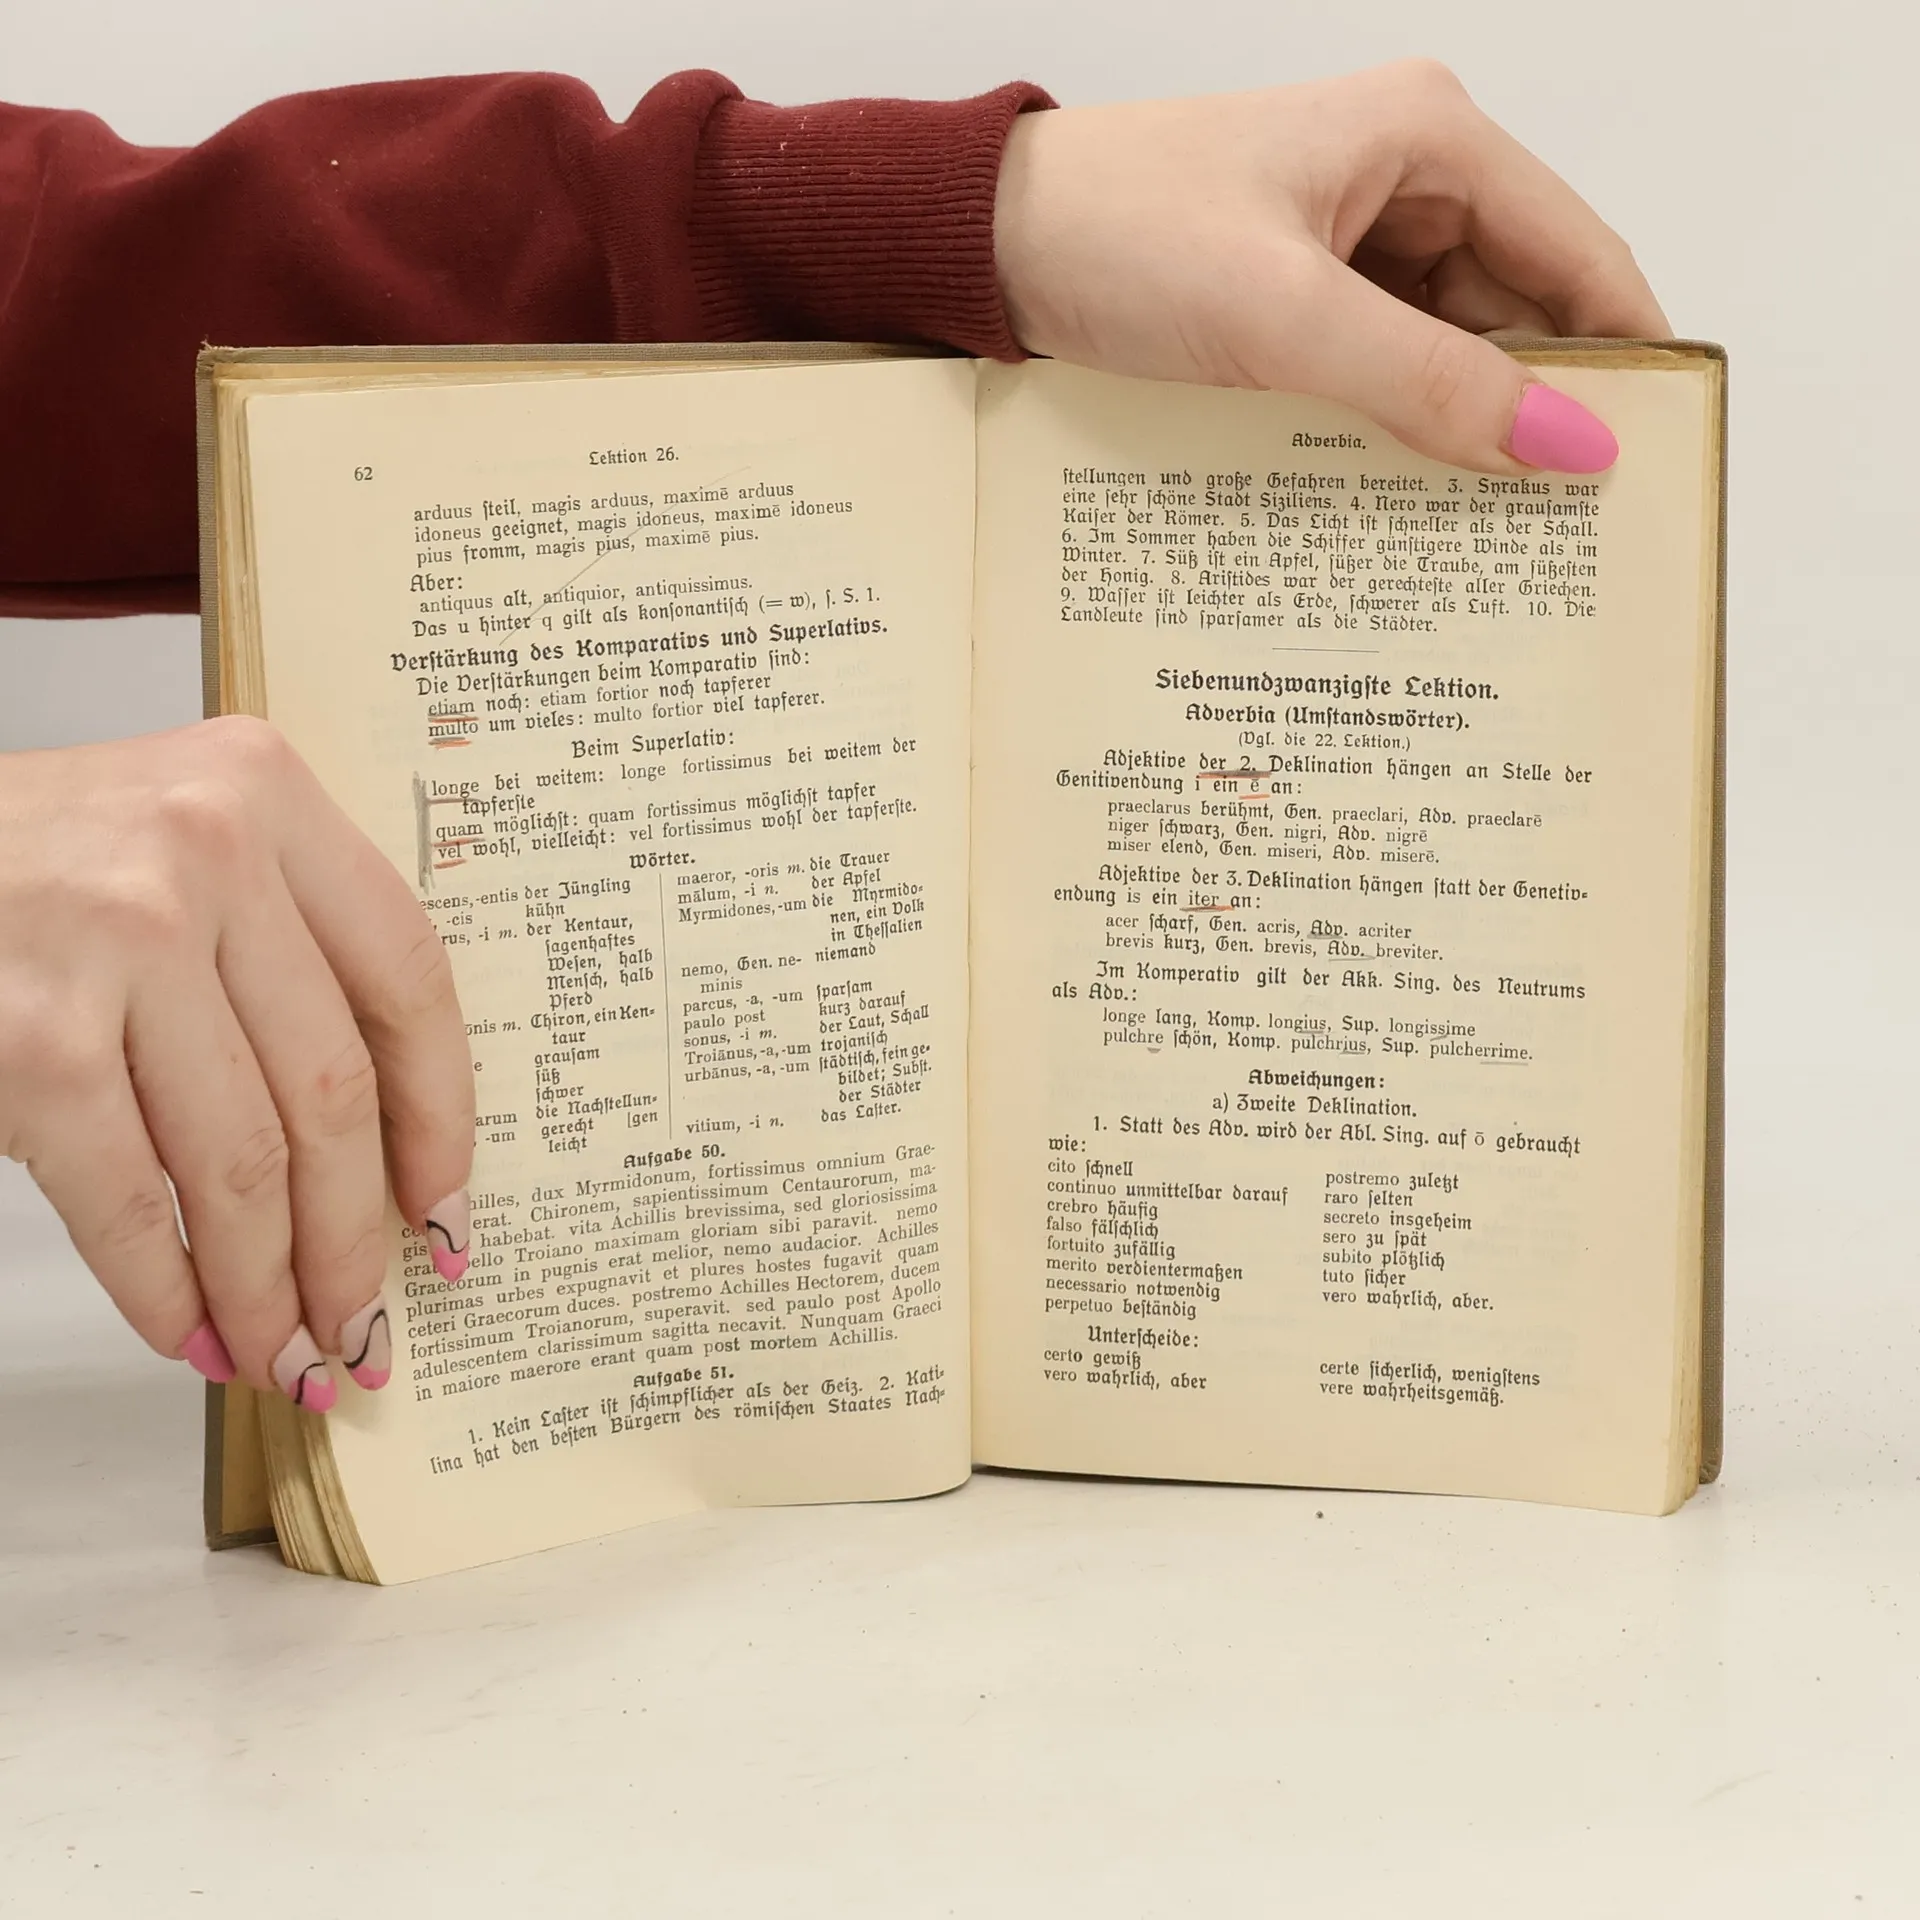 62
Lektion 26.
arduus ſteil, magis arduus, maximē arduus
idoneus geeignet, magis idoneus, maximē idoneus
pius fromm, magis pius, maximē pius.
Aber:
antiquus alt, antiquior, antiquissimus.
Das u hinter q gilt als konſonantiſch (= w), ſ. S. 1.
Verſtärkung des Komparativs und Superlativs.
Die Verſtärkungen beim Komparativ ſind:
etiam noch: etiam fortior noch tapferer
multo um vieles: multo fortior viel tapferer.
Beim Superlativ:
longe bei weitem: longe fortissimus bei weitem der
tapferſte
quam möglichſt: quam fortissimus möglichſt tapfer
vel wohl, vielleicht: vel fortissimus wohl der tapferſte.
Wörter.
escens, -entis der Jüngling
, -cis kühn
rus, -i m. der Kentaur,
ſagenhaftes
Weſen, halb
Menſch, halb
Pferd
ōnis m. Chiron, ein Ken⸗
taur
e grauſam
ſüß
ſchwer
arum die Nachſtellun⸗
, -um gerecht [gen
leicht
maeror, -oris m. die Trauer
mālum, -i n. der Apfel
Myrmidones, -um die Myrmido⸗
nen, ein Volk
in Theſſalien
nemo, Gen. ne- niemand
minis
parcus, -a, -um ſparſam
paulo post kurz darauf
sonus, -i m. der Laut, Schall
Troiānus, -a, -um trojaniſch
urbānus, -a, -um ſtädtiſch, fein ge⸗
bildet; Subſt.
der Städter
vitium, -i n. das Laſter.
Aufgabe 50.
hilles, dux Myrmidonum, fortissimus omnium Grae-
erat. Chironem, sapientissimum Centaurorum, ma-
gis habebat. vita Achillis brevissima, sed gloriosissima
erat bello Troiano maximam gloriam sibi paravit. nemo
Graecorum in pugnis erat melior, nemo audacior. Achilles
plurimas urbes expugnavit et plures hostes fugavit quam
ceteri Graecorum duces. postremo Achilles Hectorem, ducem
fortissimum Troianorum, superavit. sed paulo post Apollo
adulescentem clarissimum sagitta necavit. Nunquam Graeci
in maiore maerore erant quam post mortem Achillis.
Aufgabe 51.
1. Kein Laſter iſt ſchimpflicher als der Geiz. 2. Kati⸗
lina hat den beſten Bürgern des römiſchen Staates Nach⸗
Adverbia.
ſtellungen und große Gefahren bereitet. 3. Syrakus war
eine ſehr ſchöne Stadt Siziliens. 4. Nero war der grauſamſte
Kaiſer der Römer. 5. Das Licht iſt ſchneller als der Schall.
6. Im Sommer haben die Schiffer günſtigere Winde als im
Winter. 7. Süß iſt ein Apfel, ſüßer die Traube, am ſüßeſten
der Honig. 8. Ariſtides war der gerechteſte aller Griechen.
9. Waſſer iſt leichter als Erde, ſchwerer als Luft. 10. Die
Landleute ſind ſparſamer als die Städter.
Siebenundzwanzigſte Lektion.
Adverbia (Umſtandswörter).
(Vgl. die 22. Lektion.)
Adjektive der 2. Deklination hängen an Stelle der
Genitivendung i ein ē an:
praeclarus berühmt, Gen. praeclari, Adv. praeclarē
niger ſchwarz, Gen. nigri, Adv. nigrē
miser elend, Gen. miseri, Adv. miserē.
Adjektive der 3. Deklination hängen ſtatt der Genetiv⸗
endung is ein iter an:
acer ſcharf, Gen. acris, Adv. acriter
brevis kurz, Gen. brevis, Adv. breviter.
Im Komperativ gilt der Akk. Sing. des Neutrums
als Adv.:
longe lang, Komp. longius, Sup. longissime
pulchre ſchön, Komp. pulchrius, Sup. pulcherrime.
Abweichungen:
a) Zweite Deklination.
1. Statt des Adv. wird der Abl. Sing. auf ō gebraucht
wie:
cito ſchnell
continuo unmittelbar darauf
crebro häufig
falso fälſchlich
fortuito zufällig
merito verdientermaßen
necessario notwendig
perpetuo beſtändig
postremo zuletzt
raro ſelten
secreto insgeheim
sero zu ſpät
subito plötzlich
tuto ſicher
vero wahrlich, aber.
Unterſcheide:
certo gewiß
vero wahrlich, aber
certe ſicherlich, wenigſtens
vere wahrheitsgemäß.